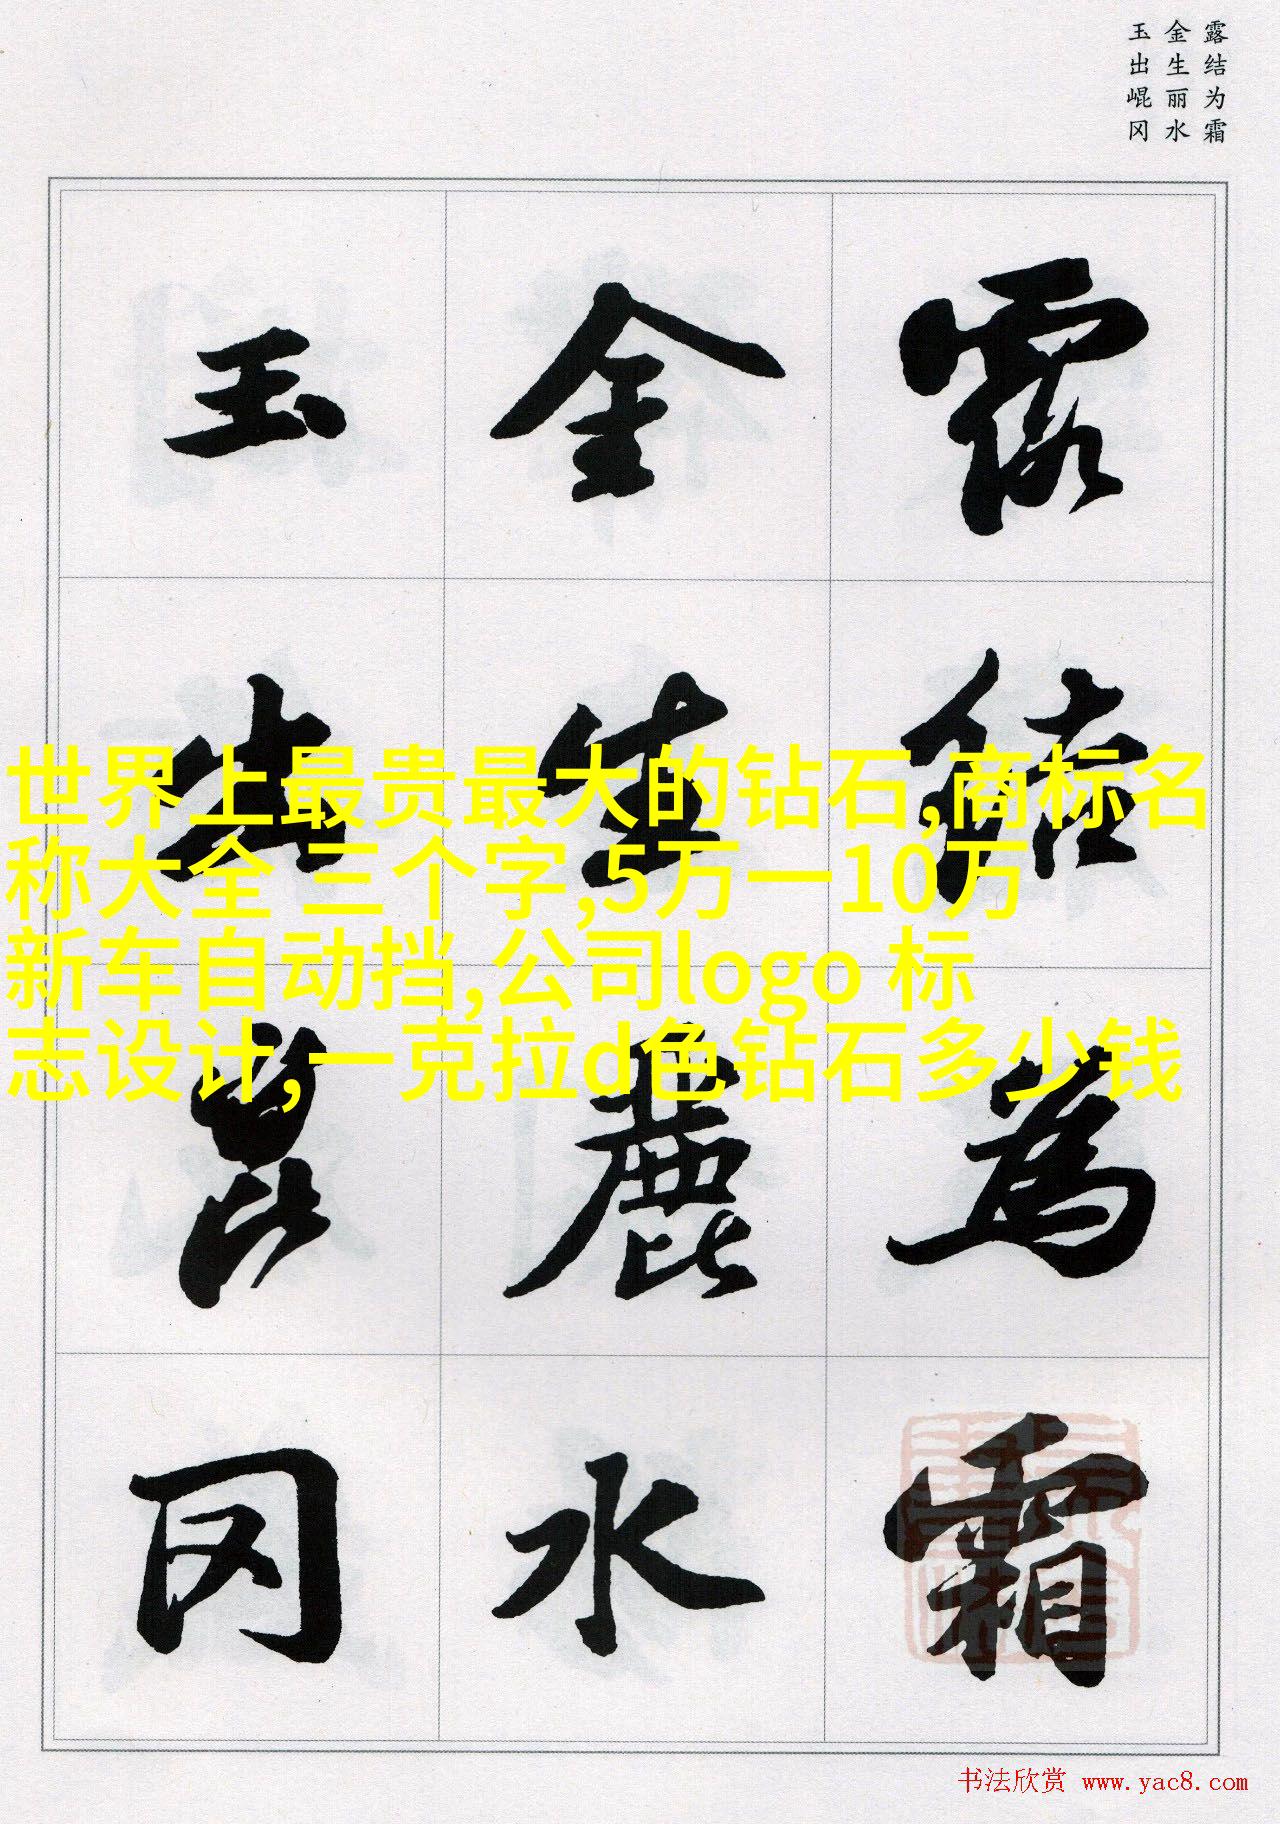 露结为霜
金生丽水
玉出崐冈
露結為霜
金生麗水
玉出崑冈
世界上最贵最大的钻石,商标名
称大全 三个字,5万一10万
新车自动挡,公司logo 标
志设计,一克拉d色钻石多少钱
书法欣赏 www.yac8.com